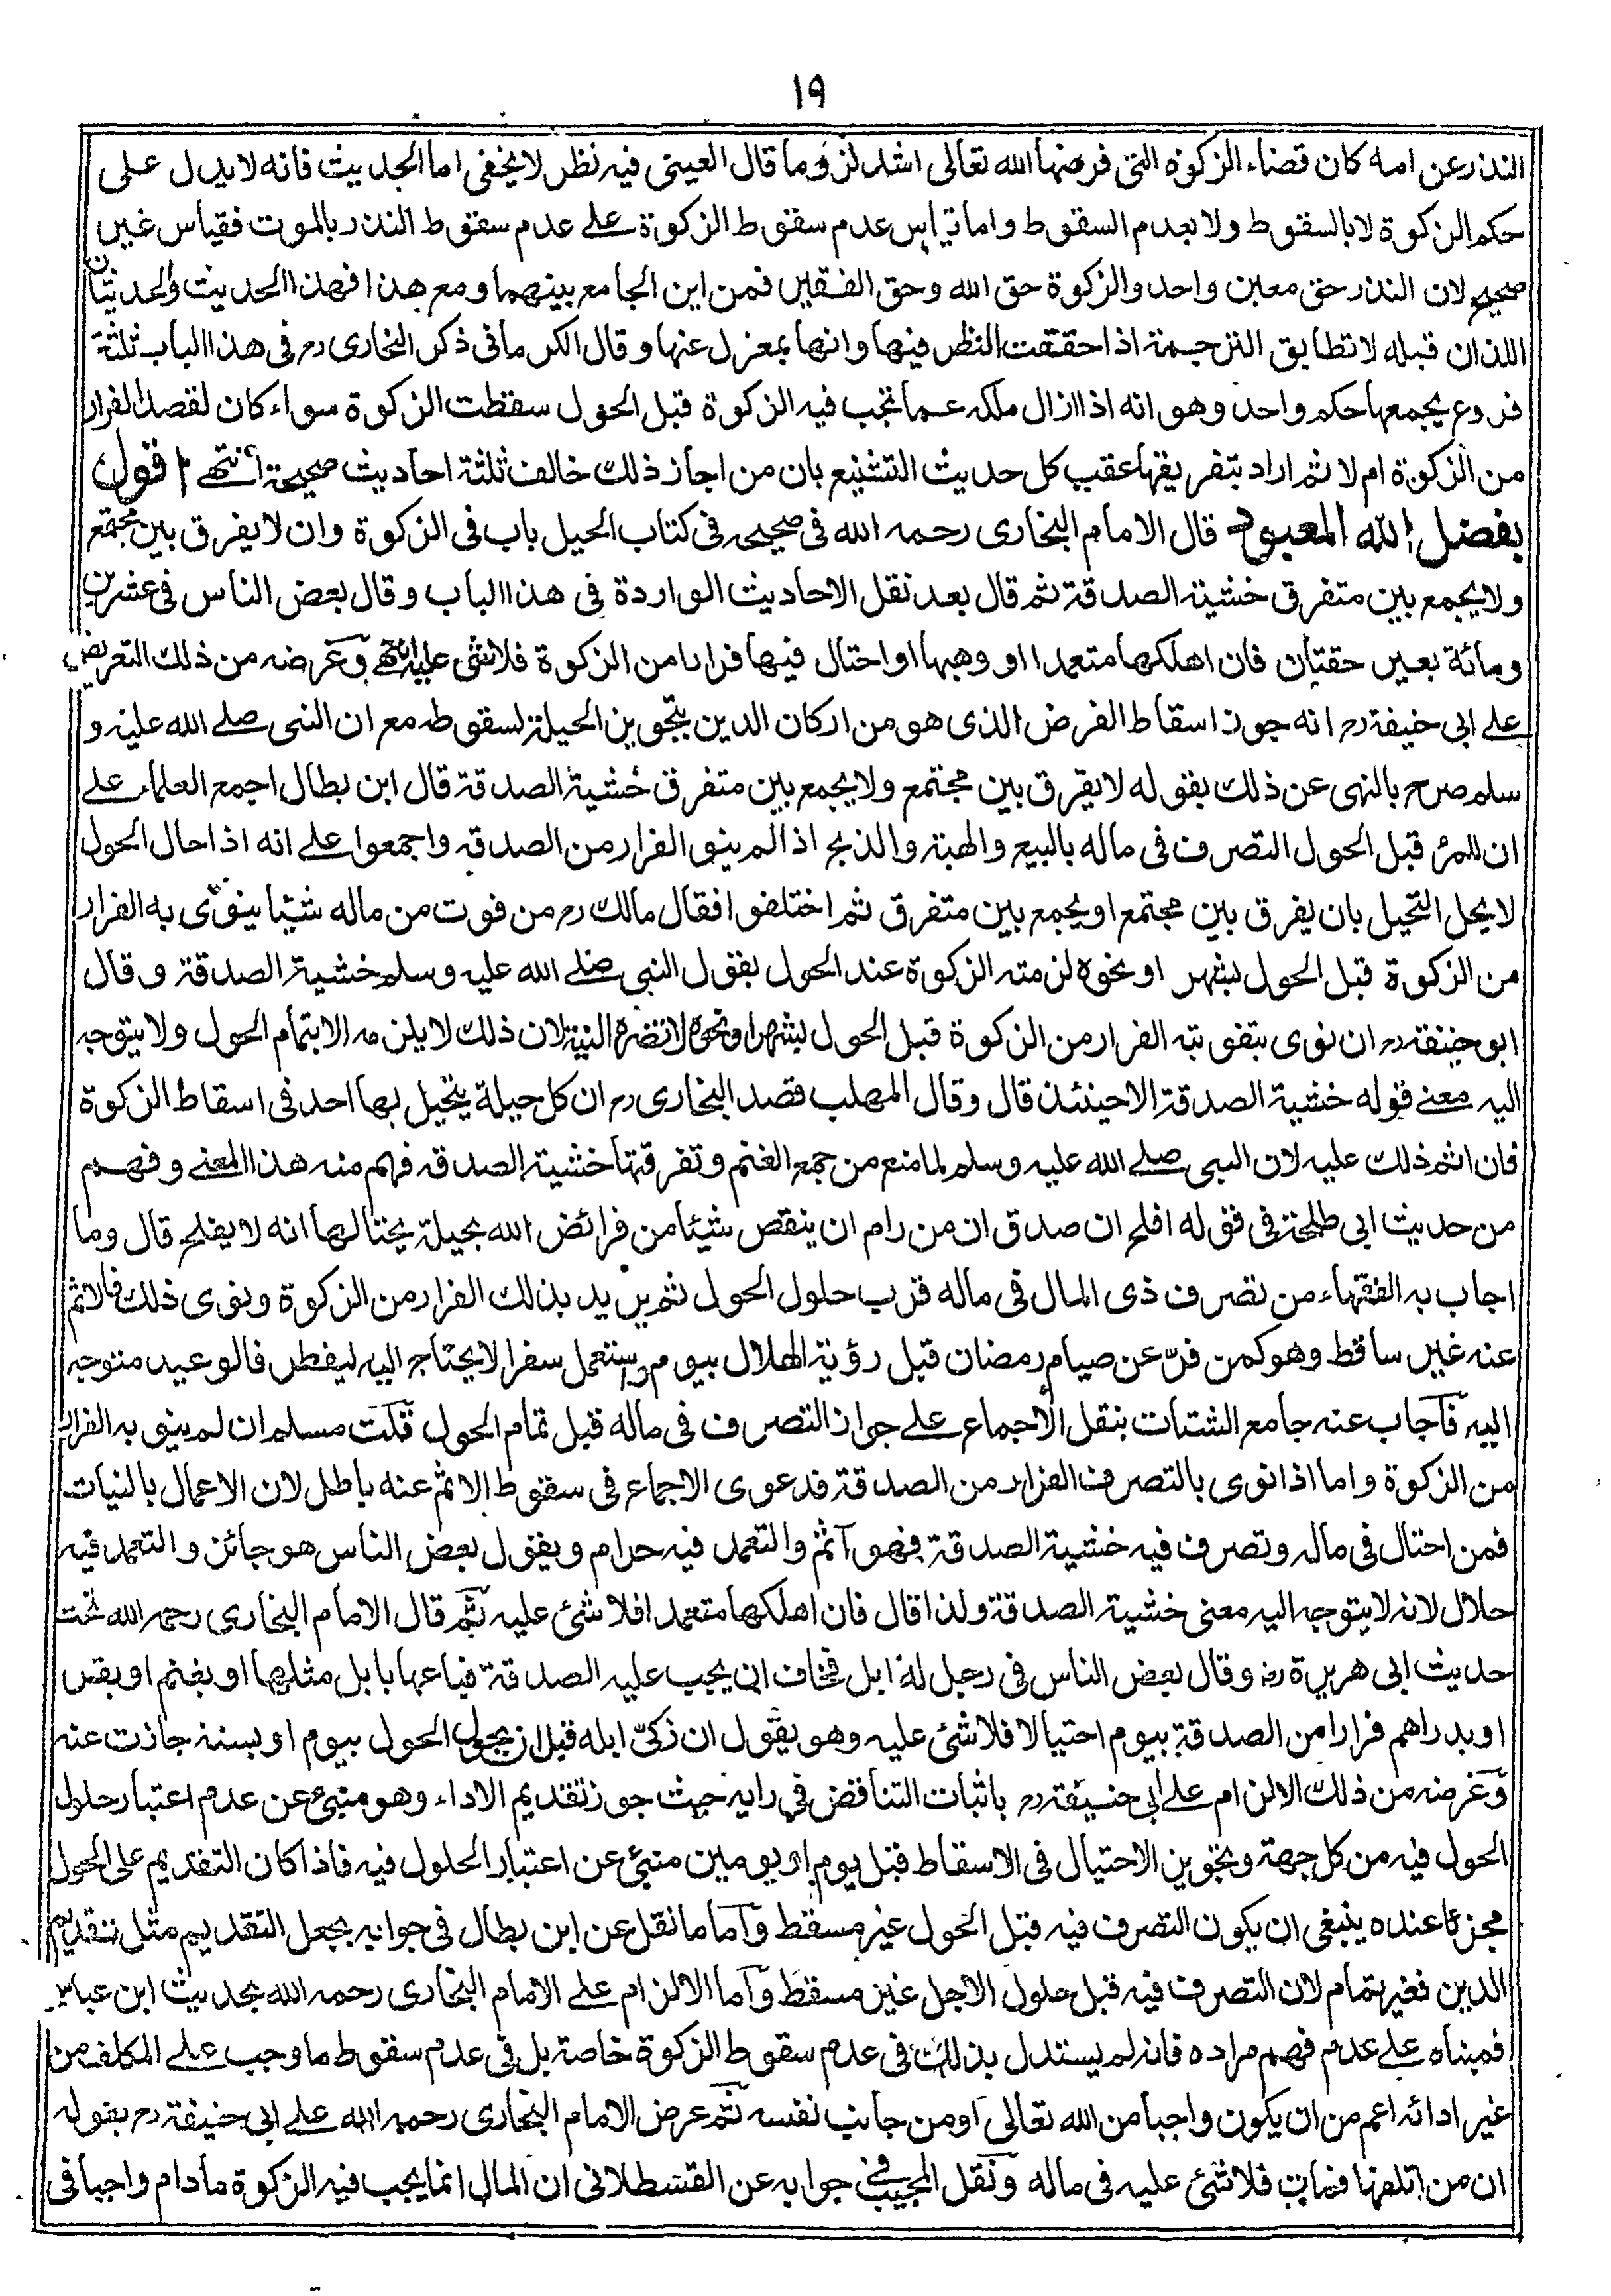 ١٩
النذر عن امه كان قضاء الزكوة التى فرضها الله تعالى اشد لزوما قال العينى فيه نظر لا يخفى اما الحديث فانه لا يدل على
حكم الزكوة لا بالسقوط ولا بعدم السقوط واما قياس عدم سقوط الزكوة على عدم سقوط النذر بالموت فقياس غير
صحيح لان النذر حق معين واحد والزكوة حق الله وحق الفقير فمن اين الجامع بينهما ومع هذا فهذا الحديث والحديثان
اللذان قبله لا تطابق الترجمة اذا حققت النظر فيها وانها بمعزل عنها وقال الكرمانى ذكر البخارى رح فى هذا الباب ثلثة
فروع يجمعها حكم واحد وهو انه اذا ازال ملكه عما تجب فيه الزكوة قبل الحول سقطت الزكوة سواء كان لقصد الفرار
من الزكوة ام لا ثم اراد بتفريقها عقب كل حديث التشنيع بان من اجاز ذلك خالف ثلثة احاديث صحيحة انتهے اقول
بفضل الله المعبود قال الامام البخارى رحمه الله فى صحيحه فى كتاب الحيل باب فى الزكوة وان لا يفرق بين مجتمع
ولا يجمع بين متفرق خشية الصدقة ثم قال بعد نقل الاحاديث الواردة فى هذا الباب وقال بعض الناس فى عشرين
ومائة بعير حقتان فان اهلكها متعمدا او وهبها او احتال فيها فرارا من الزكوة فلا شئ عليه انتهے وغرضه من ذلك التعريض
علے ابى حنيفة رح انه جوز اسقاط الفرض الذى هو من اركان الدين بتجويز الحيلة لسقوطه مع ان النبى صلے الله عليه و
سلم صرح بالنهى عن ذلك بقوله لا يفرق بين مجتمع ولا يجمع بين متفرق خشية الصدقة قال ابن بطال اجمع العلماء علے
ان للمرء قبل الحول التصرف فى ماله بالبيع والهبة والذبح اذا لم ينو الفرار من الصدقة واجمعوا علے انه اذا حال الحول
لا يحل التحيل بان يفرق بين مجتمع او يجمع بين متفرق ثم اختلفوا فقال مالك رح من فوت من ماله شيئا ينوى به الفرار
من الزكوة قبل الحول بشهر او نحوه لزمته الزكوة عند الحول بقول النبى صلے الله عليه وسلم خشية الصدقة وقال
ابو حنيفة رح ان نوى بتفويته الفرار من الزكوة قبل الحول بشهر او نحوه لا تضره النية لان ذلك لا يلزمه الا بتمام الحول ولا يتوجه
اليه معنے قوله خشية الصدقة الا حينئذ قال وقال المهلب قصد البخارى رح ان كل حيلة يتحيل بها احد فى اسقاط الزكوة
فان اثم ذلك عليه لان النبى صلے الله عليه وسلم لما منع من جمع الغنم وتفرقتها خشية الصدقة فهم منه هذا المعنے وفهم
من حديث ابى طلحة فى قوله افلح ان صدق ان من رام ان ينقص شيئا من فرائض الله بحيلة يحتالها انه لا يفلح قال وما
اجاب به الفقهاء من تصرف ذى المال فى ماله قرب حلول الحول ثم يريد بذلك الفرار من الزكوة ونوى ذلك فالاثم
عنه غير ساقط وهو كمن فرّ عن صيام رمضان قبل رؤية الهلال بيوم واستعمل سفرا لا يحتاج اليه ليفطر فالوعيد متوجه
اليه فاجاب عنه جامع الشتات بنقل الاجماع علے جواز التصرف فى ماله قبل تمام الحول قلت مسلم ان لم ينو به الفرار
من الزكوة واما اذا نوى بالتصرف الفرار من الصدقة فدعوى الاجماع فى سقوط الاثم عنه باطل لان الاعمال بالنيات
فمن احتال فى ماله وتصرف فيه خشية الصدقة فهو آثم والتعمد فيه حرام ويقول بعض الناس هو جائز والتعمد فيه
حلال لانه لا يتوجه اليه معنى خشية الصدقة ولذا قال فان اهلكها متعمدا فلا شئ عليه ثم قال الامام البخارى رحمه الله تحت
حديث ابى هريرة رض وقال بعض الناس فى رجل له ابل فخاف ان يجب عليه الصدقة فباعها بابل مثلها او بغنم او بقر
او بدراهم فرارا من الصدقة بيوم احتيالا فلا شئ عليه وهو يقول ان زكىّ ابله قبل ان يحول الحول بيوم او بسنة جازت عنه
وغرضه من ذلك الالزام علے ابى حنيفة رح باثبات التناقض فى رايه حيث جوز تقديم الاداء وهو منبئ عن عدم اعتبار حلول
الحول فيه من كل جهة وتجويز الاحتيال فى الاسقاط قبل يوم او يومين منبئ عن اعتبار الحلول فيه فاذا كان التقديم على الحول
مجزئا عنده ينبغى ان يكون التصرف فيه قبل الحول غير مسقط واما ما نقل عن ابن بطال فى جوابه بجعل التقديم مثل تقديم
الدين فغير تمام لان التصرف فيه قبل حلول الاجل غير مسقط واما الالزام علے الامام البخارى رحمه الله بحديث ابن عباس
فمبناه علے عدم فهم مراده فانه لم يستدل بذلك فى عدم سقوط الزكوة خاصة بل فى عدم سقوط ما وجب علے المكلف من
غير ادائه اعم من ان يكون واجبا من الله تعالى او من جانب نفسه ثم عرض الامام البخارى رحمه الله علے ابى حنيفة رح بقوله
ان من اتلفها فمات فلا شئ عليه فى ماله ونقل المجيب فى جوابه عن القسطلانى ان المال انما يجب فيه الزكوة مادام واجبا فى